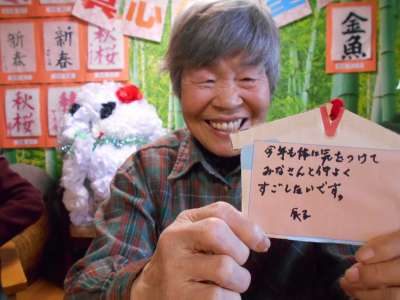 真心
新春
新春
秋桜
秋桜
金魚
今年も体に気をつけて
みなさんと仲よく
すごしたいです。